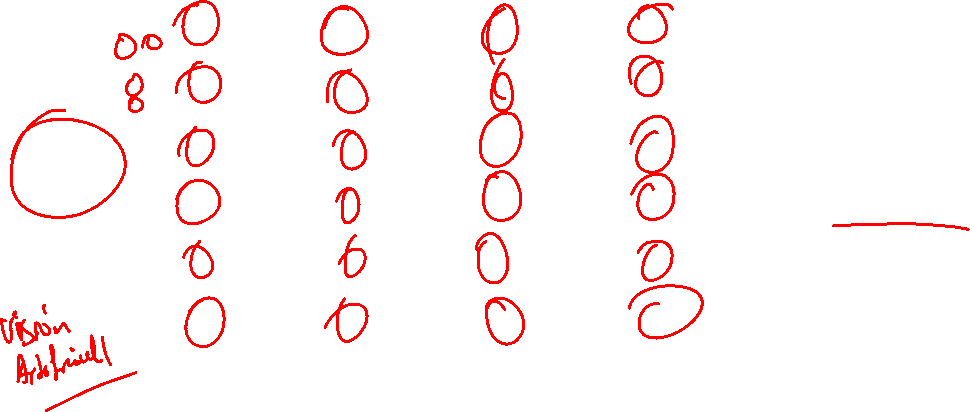 Visión
Artificial